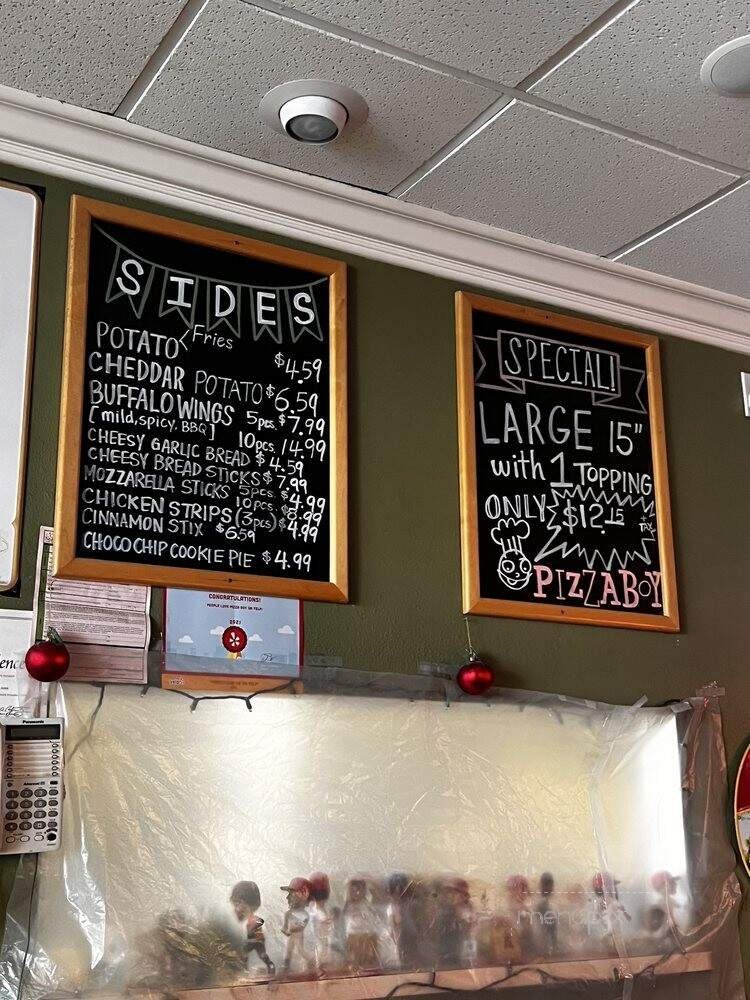 SIDES
POTATO Fries $4.59
CHEDDAR POTATO $6.59
BUFFALO WINGS 5pcs. $7.99
[mild, spicy, BBQ] 10pcs. 14.99
CHEESY GARLIC BREAD $4.59
CHEESY BREAD STICKS $7.99
MOZZARELLA STICKS 5pcs. $4.99
10pcs. $8.99
CHICKEN STRIPS (3pcs) $4.99
CINNAMON STIX $6.59
CHOCO CHIP COOKIE PIE $4.99
SPECIAL!
LARGE 15"
with 1 TOPPING
ONLY $12.15
+ TAX
PIZZABOY
CONGRATULATIONS!
PEOPLE LOVE PIZZA BOY ON YELP!
2021
Panasonic
menu